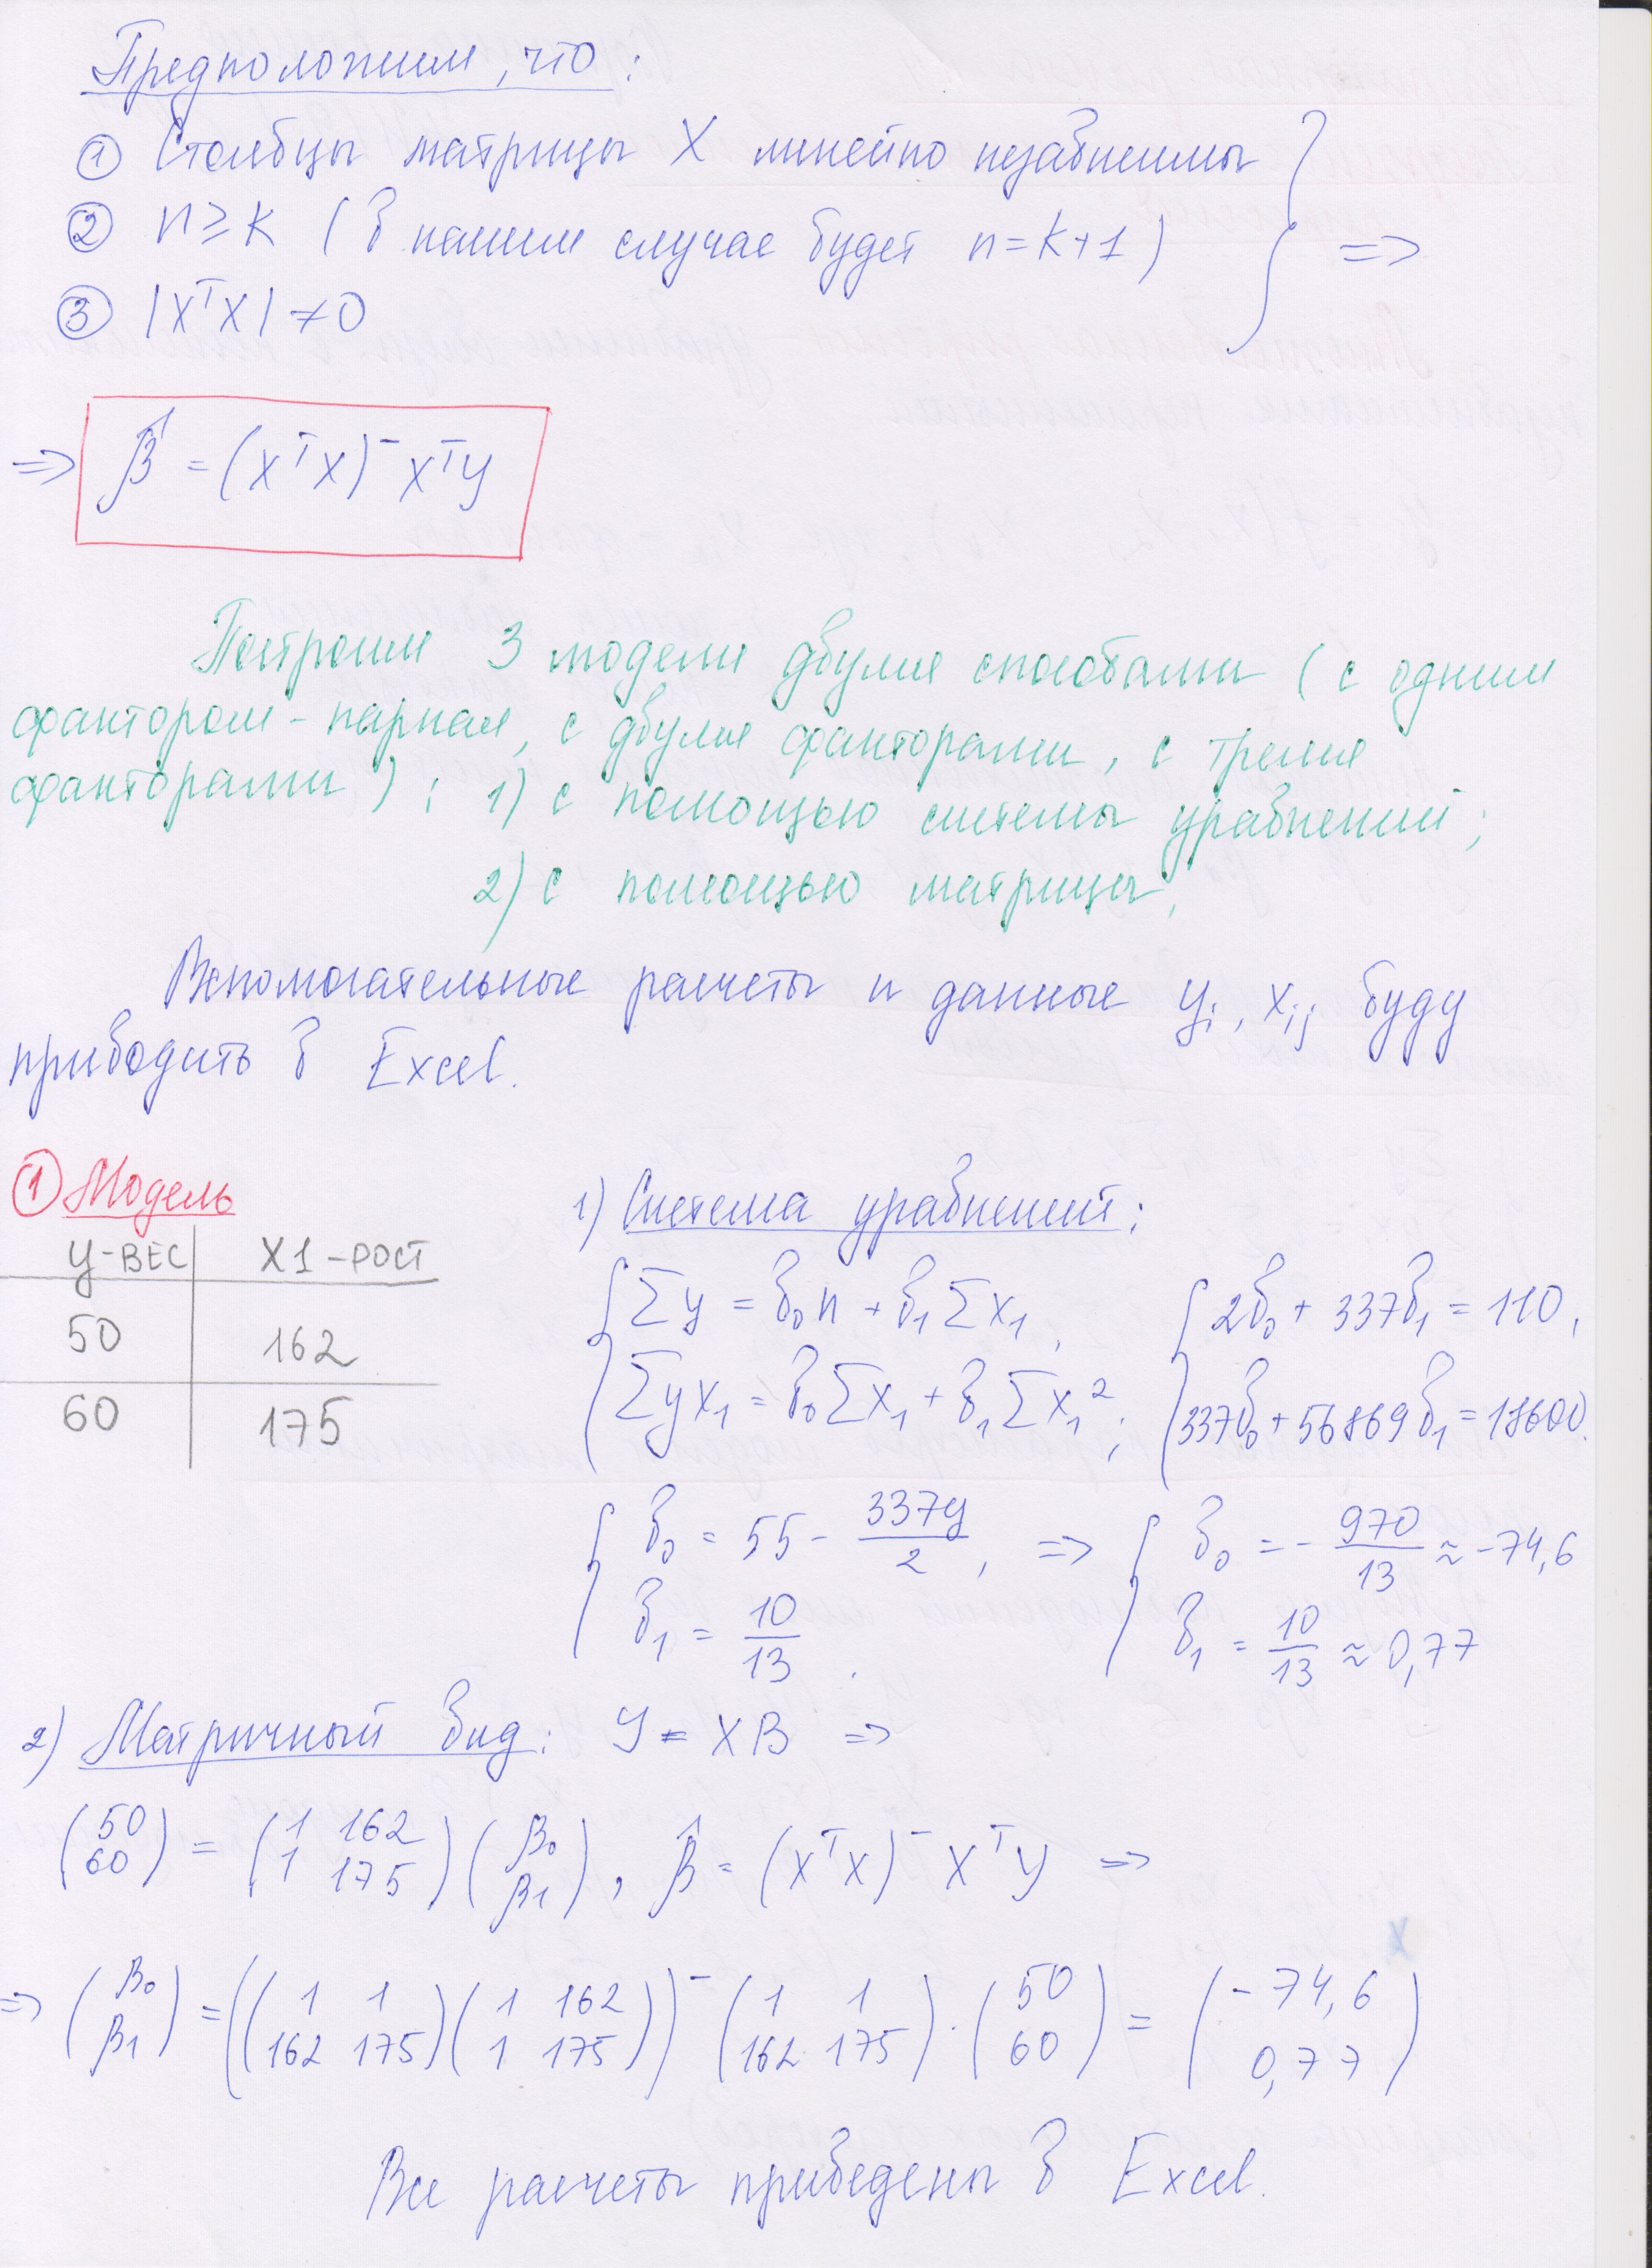 Предположим, что:
① Столбцы матрицы X линейно независимы
② n ≥ k ( в нашем случае будет n = k+1 ) } =>
③ |XᵀX| ≠ 0
=> β̂ = (XᵀX)⁻ XᵀY
Построим 3 модели двумя способами ( с одним
фактором - парная, с двумя факторами, с тремя
факторами ) : 1) с помощью системы уравнений;
2) с помощью матрицы,
Вспомогательные расчеты и данные yᵢ, xᵢⱼ буду
приводить в Excel.
① Модель
У-ВЕС X1-РОСТ
50 162
60 175
1) Система уравнений:
{ Σy = b₀n + b₁Σx₁, { 2b₀ + 337b₁ = 110,
Σyx₁ = b₀Σx₁ + b₁Σx₁²; 337b₀ + 56869b₁ = 18600.
{ b₀ = 55 - 337y/2, => { b₀ = - 970/13 ≈ -74,6
b₁ = 10/13. b₁ = 10/13 ≈ 0,77
2) Матричный вид: Y = XB =>
(50 60) = (1 162 1 175) (β₀ β₁), β̂ = (XᵀX)⁻ XᵀY =>
=> (β₀ β₁) = ((1 1 162 175) (1 162 1 175))⁻ (1 1 162 175) · (50 60) = (-74,6 0,77)
Все расчеты приведены в Excel.